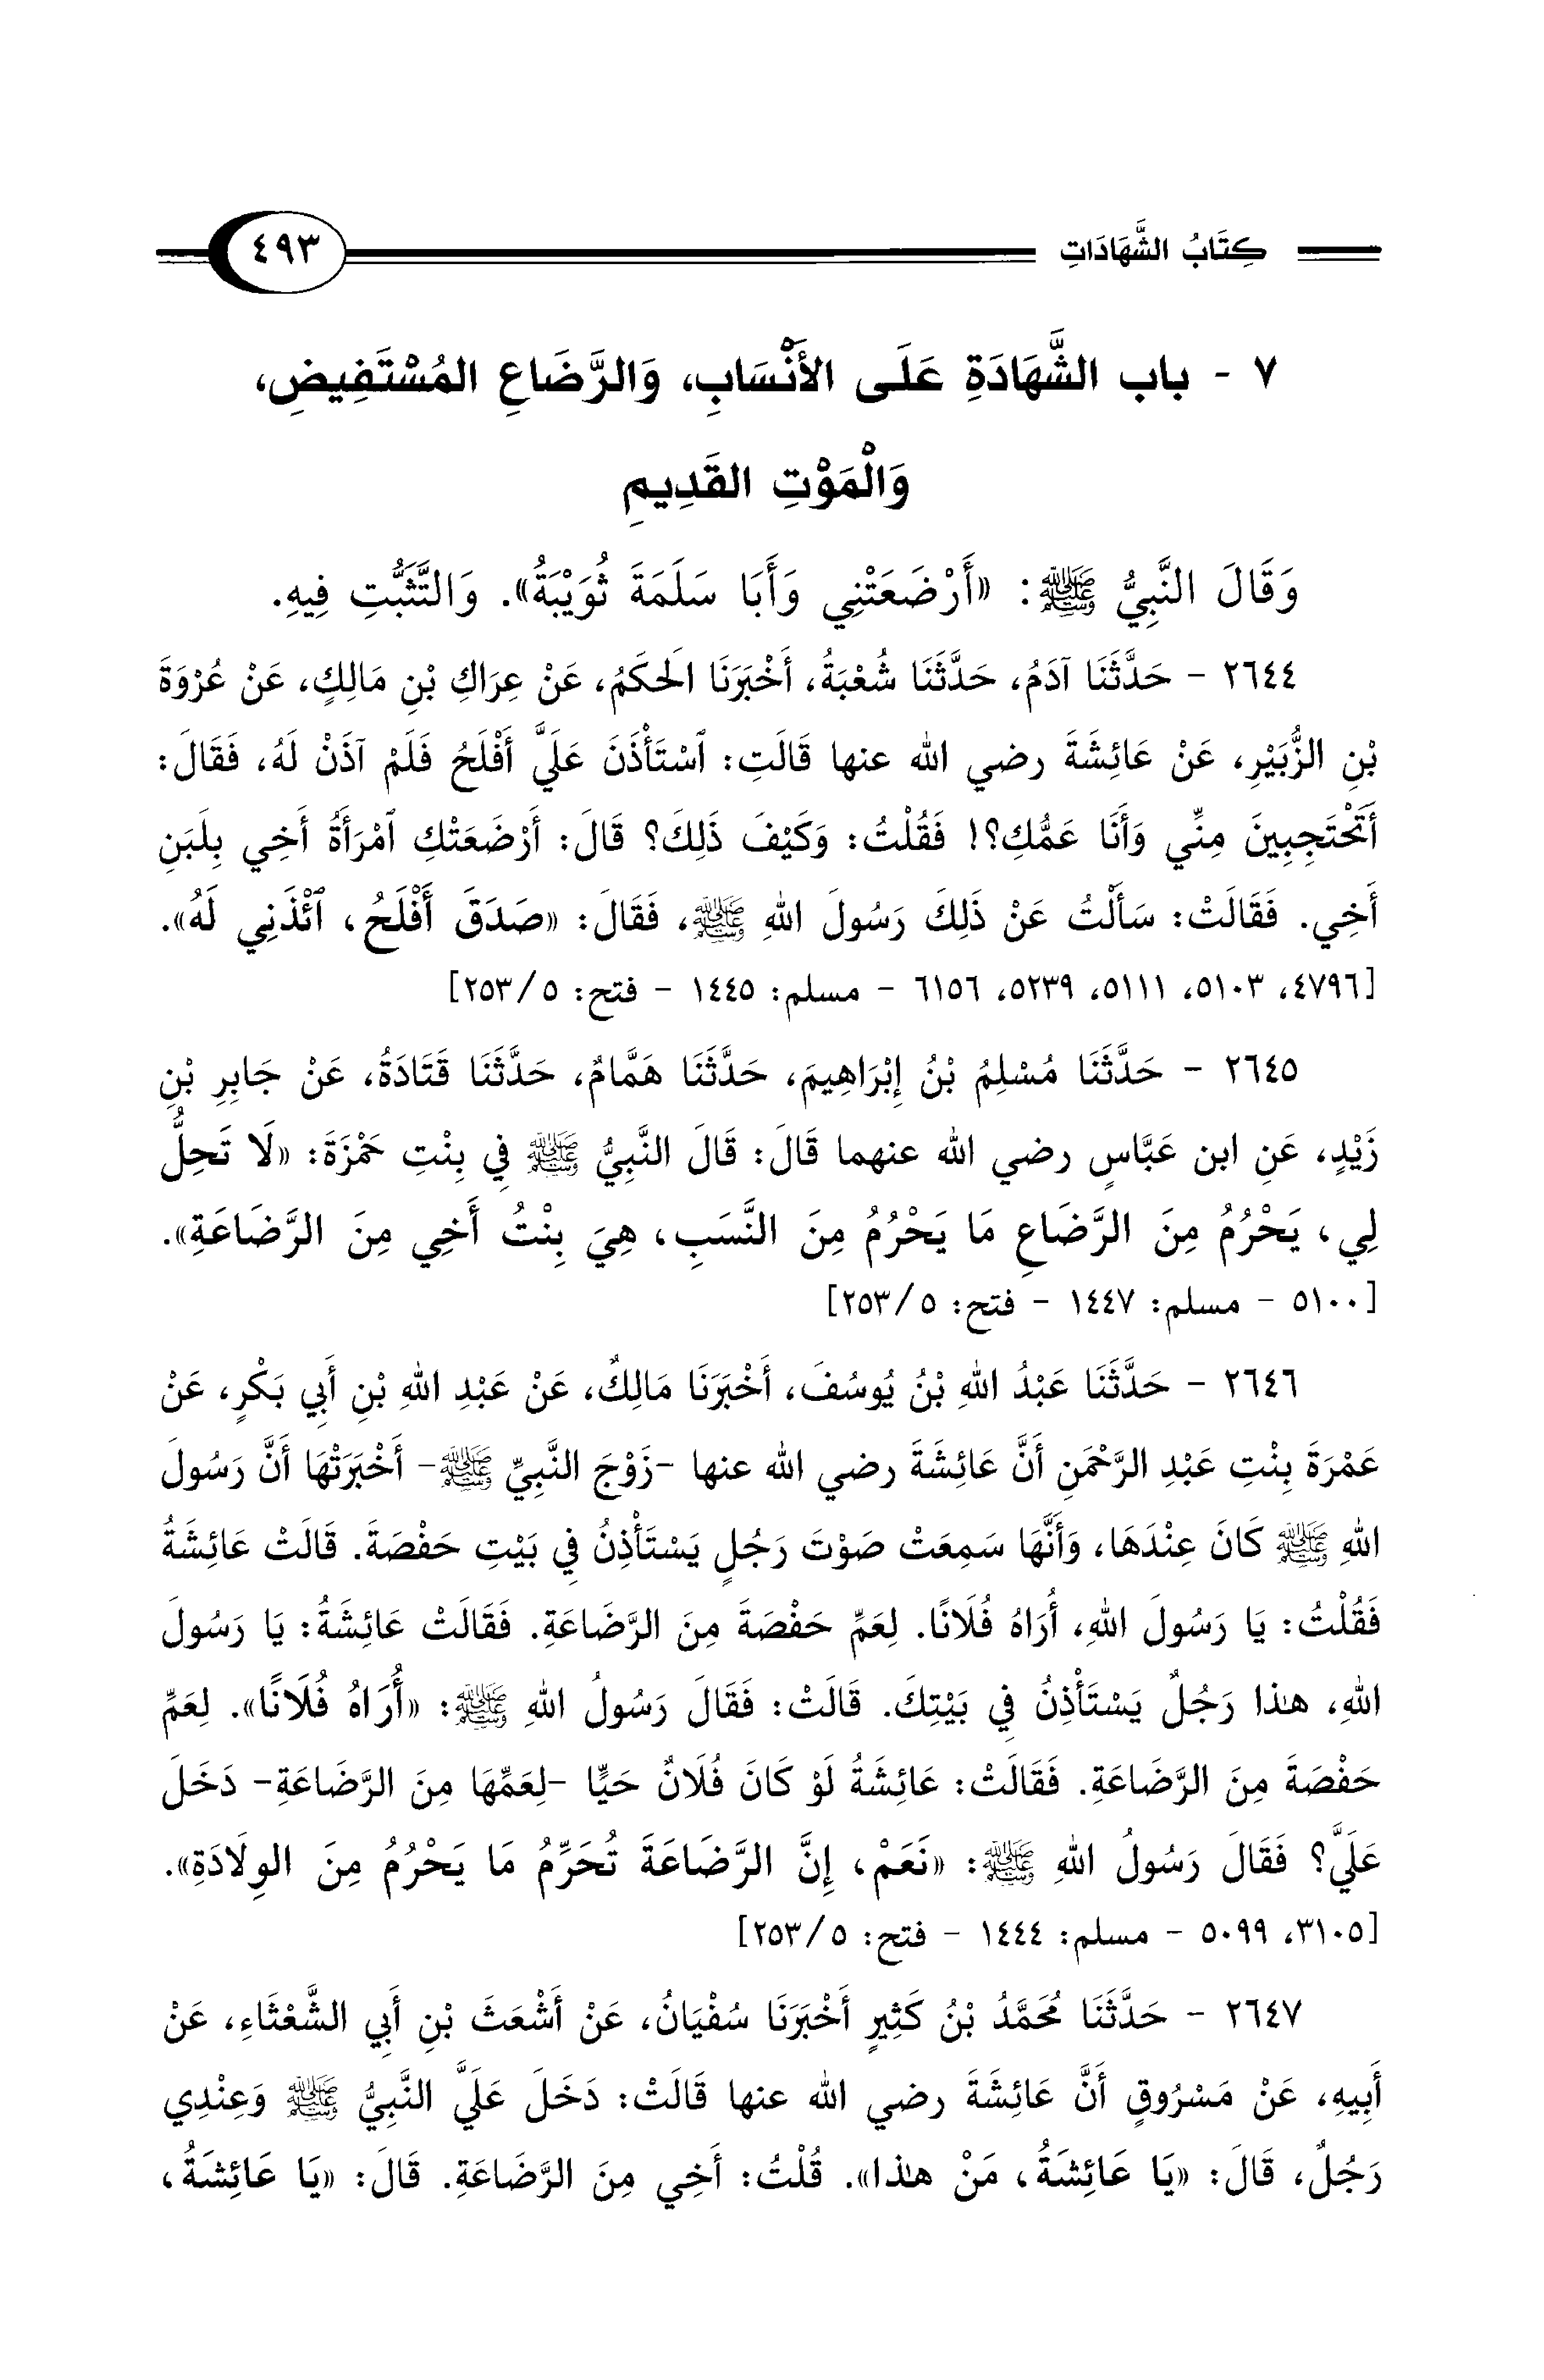 كِتَابُ الشَّهَادَاتِ ٤٩٣
٧ - باب الشَّهَادَةِ عَلَى الأَنْسَابِ، وَالرَّضَاعِ المُسْتَفِيضِ،
وَالْمَوْتِ القَدِيمِ
وَقَالَ النَّبِيُّ ﷺ: «أَرْضَعَتْنِي وَأَبَا سَلَمَةَ ثُوَيْبَةُ». وَالتَّثَبُّتِ فِيهِ.
٢٦٤٤ - حَدَّثَنَا آدَمُ، حَدَّثَنَا شُعْبَةُ، أَخْبَرَنَا الَحكَمُ، عَنْ عِرَاكِ بْنِ مَالِكٍ، عَنْ عُرْوَةَ
بْنِ الزُّبَيْرِ، عَنْ عَائِشَةَ رضي الله عنها قَالَتِ: ٱسْتَأْذَنَ عَلَيَّ أَفْلَحُ فَلَمْ آذَنْ لَهُ، فَقَالَ:
أَتَحْتَجِبِينَ مِنِّي وَأَنَا عَمُّكِ؟! فَقُلْتُ: وَكَيْفَ ذَلِكَ؟ قَالَ: أَرْضَعَتْكِ ٱمْرَأَةُ أَخِي بِلَبَنِ
أَخِي. فَقَالَتْ: سَأَلْتُ عَنْ ذَلِكَ رَسُولَ اللهِ ﷺ، فَقَالَ: «صَدَقَ أَفْلَحُ، ٱئْذَنِي لَهُ».
[٤٧٩٦، ٥١٠٣، ٥١١١، ٥٢٣٩، ٦١٥٦ - مسلم: ١٤٤٥ - فتح: ٥/٢٥٣]
٢٦٤٥ - حَدَّثَنَا مُسْلِمُ بْنُ إِبْرَاهِيمَ، حَدَّثَنَا هَمَّامٌ، حَدَّثَنَا قَتَادَةُ، عَنْ جَابِرِ بْنِ
زَيْدٍ، عَنِ ابن عَبَّاسٍ رضي الله عنهما قَالَ: قَالَ النَّبِيُّ ﷺ فِي بِنْتِ حَمْزَةَ: «لَا تَحِلُّ
لِي، يَحْرُمُ مِنَ الرَّضَاعِ مَا يَحْرُمُ مِنَ النَّسَبِ، هِيَ بِنْتُ أَخِي مِنَ الرَّضَاعَةِ».
[٥١٠٠ - مسلم: ١٤٤٧ - فتح: ٥/٢٥٣]
٢٦٤٦ - حَدَّثَنَا عَبْدُ اللهِ بْنُ يُوسُفَ، أَخْبَرَنَا مَالِكٌ، عَنْ عَبْدِ اللهِ بْنِ أَبِي بَكْرٍ، عَنْ
عَمْرَةَ بِنْتِ عَبْدِ الرَّحْمَنِ أَنَّ عَائِشَةَ رضي الله عنها -زَوْجَ النَّبِيِّ ﷺ- أَخْبَرَتْهَا أَنَّ رَسُولَ
اللهِ ﷺ كَانَ عِنْدَهَا، وَأَنَّهَا سَمِعَتْ صَوْتَ رَجُلٍ يَسْتَأْذِنُ فِي بَيْتِ حَفْصَةَ. قَالَتْ عَائِشَةُ
فَقُلْتُ: يَا رَسُولَ اللهِ، أُرَاهُ فُلَانًا. لِعَمِّ حَفْصَةَ مِنَ الرَّضَاعَةِ. فَقَالَتْ عَائِشَةُ: يَا رَسُولَ
اللهِ، هذا رَجُلٌ يَسْتَأْذِنُ فِي بَيْتِكَ. قَالَتْ: فَقَالَ رَسُولُ اللهِ ﷺ: «أُرَاهُ فُلَانًا». لِعَمِّ
حَفْصَةَ مِنَ الرَّضَاعَةِ. فَقَالَتْ: عَائِشَةُ لَوْ كَانَ فُلَانٌ حَيًّا -لِعَمِّهَا مِنَ الرَّضَاعَةِ- دَخَلَ
عَلَيَّ؟ فَقَالَ رَسُولُ اللهِ ﷺ: «نَعَمْ، إِنَّ الرَّضَاعَةَ تُحَرِّمُ مَا يَحْرُمُ مِنَ الوِلَادَةِ».
[٣١٠٥، ٥٠٩٩ - مسلم: ١٤٤٤ - فتح: ٥/٢٥٣]
٢٦٤٧ - حَدَّثَنَا مُحَمَّدُ بْنُ كَثِيرٍ أَخْبَرَنَا سُفْيَانُ، عَنْ أَشْعَثَ بْنِ أَبِي الشَّعْثَاءِ، عَنْ
أَبِيهِ، عَنْ مَسْرُوقٍ أَنَّ عَائِشَةَ رضي الله عنها قَالَتْ: دَخَلَ عَلَيَّ النَّبِيُّ ﷺ وَعِنْدِي
رَجُلٌ، قَالَ: «يَا عَائِشَةُ، مَنْ هذا». قُلْتُ: أَخِي مِنَ الرَّضَاعَةِ. قَالَ: «يَا عَائِشَةُ،